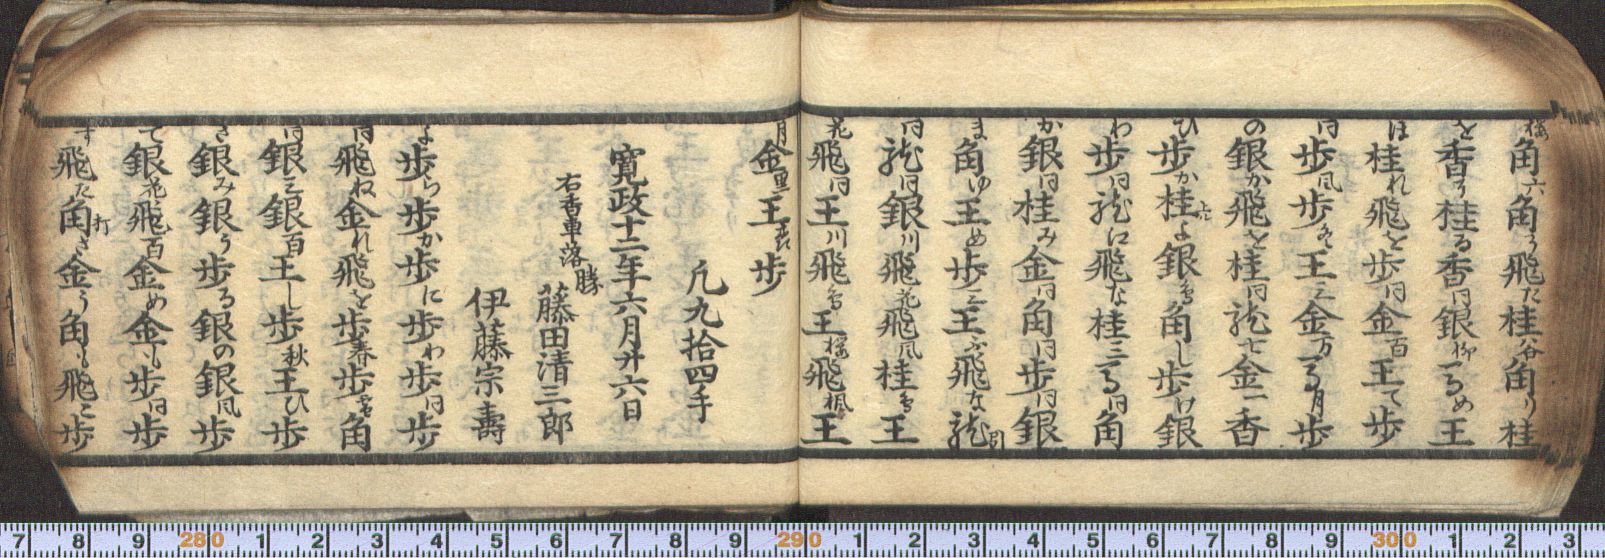 角六角う飛た桂谷角り桂
を香う桂る香同銀柳一るめ王
ほ桂れ飛と歩同金百王て歩
同歩風歩王三金万る月歩
の銀か飛を桂同龍七金一香
ひ歩か桂よ銀角し歩け銀
わ歩同龍に飛な桂三る同角
か銀同桂み金同角同歩同銀
ま角ゆ王め歩三王ふ飛な龍引
同龍同銀川飛花飛風桂王
花飛同王川飛王桜飛楓王
月金里王歩
凡九拾四手
寛政十二年六月廾六日
右香車落
勝
藤田清三郎
伊藤宗壽
よ歩ら歩か歩に歩わ歩同歩
同飛ね金れ飛を歩春歩角
同銀三銀百王し歩秋王ひ歩
き銀み銀う歩る銀の銀風歩
て銀花飛百金め金も歩同歩
す飛た角打さ金う角も飛こ歩
7 8 9 280 1 2 3 4 5 6 7 8 9 290 1 2 3 4 5 6 7 8 9 300 1 2 3